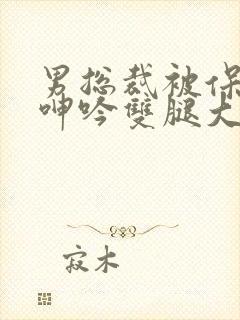 男总裁被保
呻吟雙腿大
寂木